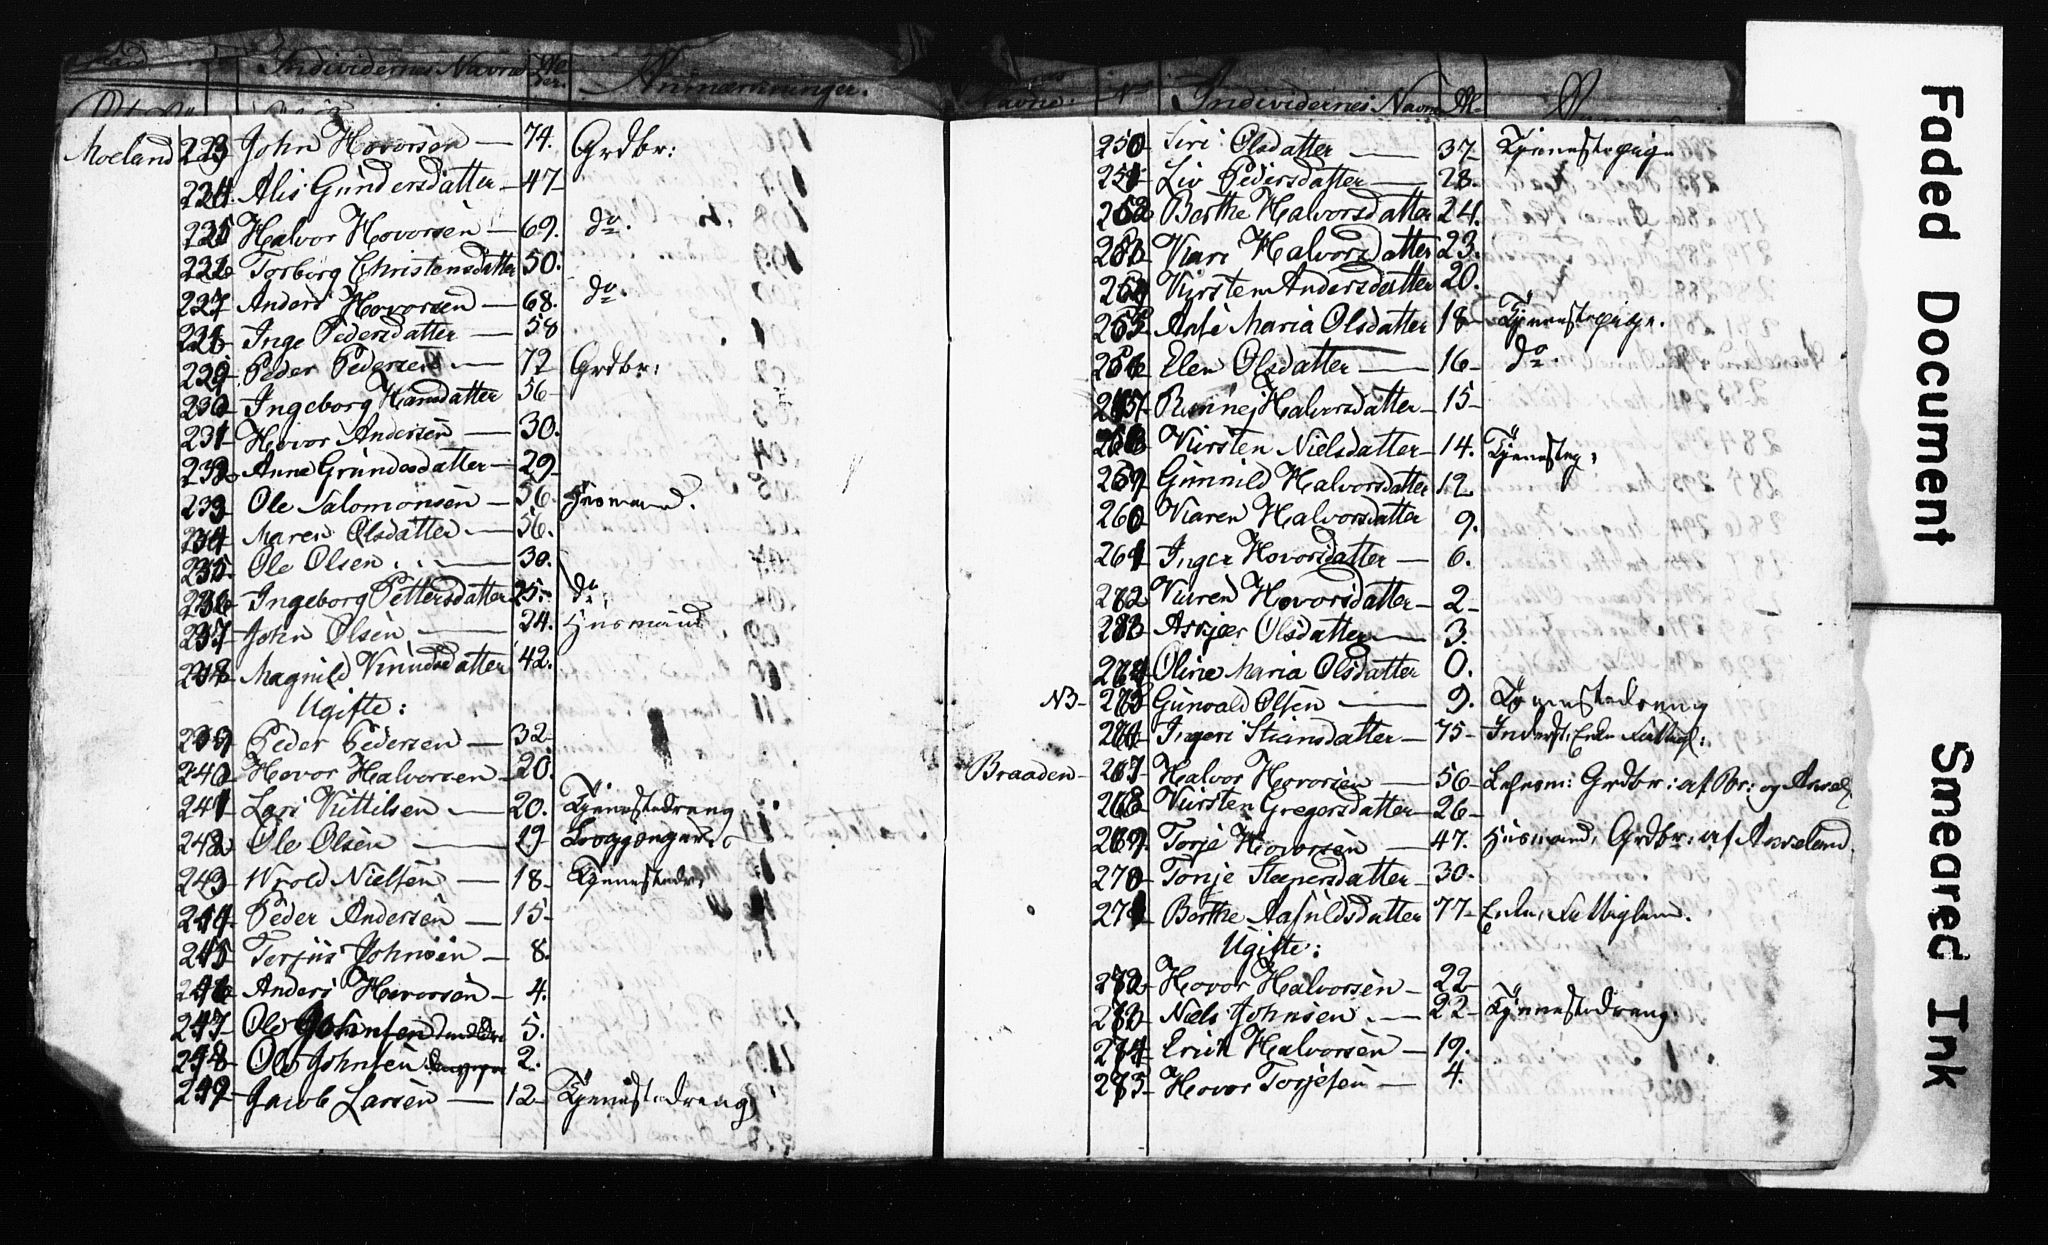 Individernes Navne Al der. Anmærkninger.
Moeland 223 John Hovorsen — 74. Grdbr:
224. Alis Gundersdatter — 47
225 Halvor Hovorsen — 69. do.
226 Torborg Christensdatter 50.
227 Anders Hovorsen — 68. do.
228 Inge Pedersdatter — 58
229 Peder Pedersen — 72 Grdbr:
230 Ingeborg Hansdatter 56
231 Hovor Andersen — 30.
232 Anne Gundersdatter — 29
233 Ole Salomonsen — 56. Huusmand.
234 Maren Olsdatter — 56.
235 Ole Olsen — 30.
236 Ingeborg Pettersdatter 25. do.
237 John Olsen — 24. Huusmand
238 Magnild Knudsdatter 42.
Ugifte:
239 Peder Pedersen — 32
240 Hovor Halvorsen — 20.
241 Lars Kittilsen — 20. Tjenestedreng
242 Ole Olsen — 19
243 Wrold Nielsen — 18 Tjenestedr:
244 Peder Andersen — 15
245 Terjus Johnsen — 8.
246 Anders Hovorsen — 4.
247 Ole Johnsen 5.
248 Ole Johnsen 2.
249 Jacob Larsen — 12 Tjenestedreng
Navne. No Individernes Navne Al-
250 Siri Olsdatter — 37 Tjenestepige
251 Liv Pedersdatter — 28.
252 Berthe Halvorsdatter 24.
253 Kari Halvorsdatter 23.
254 Kirsten Andersdatter 20.
255 Anne Maria Olsdatter 18 Tjenestepige.
256 Elen Olsdatter — 16 do.
257 Rønnej Halvorsdatter — 15
258 Kirsten Nielsdatter — 14. Tjenestep:
259 Gunnild Halvorsdatter 12
260 Karen Halvorsdatter 9.
261 Inger Hovorsdatter — 6.
262 Karen Hovorsdatter — 2
263 Askjær Olsdatter — 3.
264 Oline Maria Olsdatter 0.
NB 265 Gunvald Olsen — 9. Tjenestedreng
266 Ingeri Steinsdatter — 75 Inderst, Enke Fattigl:
Braaden 267 Halvor Hovorsen — 56 Lehnsm: Grdbr: af Br: og Aasel.
268 Kirsten Gregersdatter — 26
269. Torje Hovorsen — 47. Huusmand, Grdbr: af Aaseland.
270 Tonje Steenersdatter — 30.
271 Berthe Aasuldsdatter 77 Enke, Fattiglem.
Ugifte:
272 Hovor Halvorsen — 22
273 Niels Johnsen — 22 Tjenestedreng
274 Erich Halvorsen — 19.
275 Hovor Torjesen — 4.
Faded Document
Smeared Ink